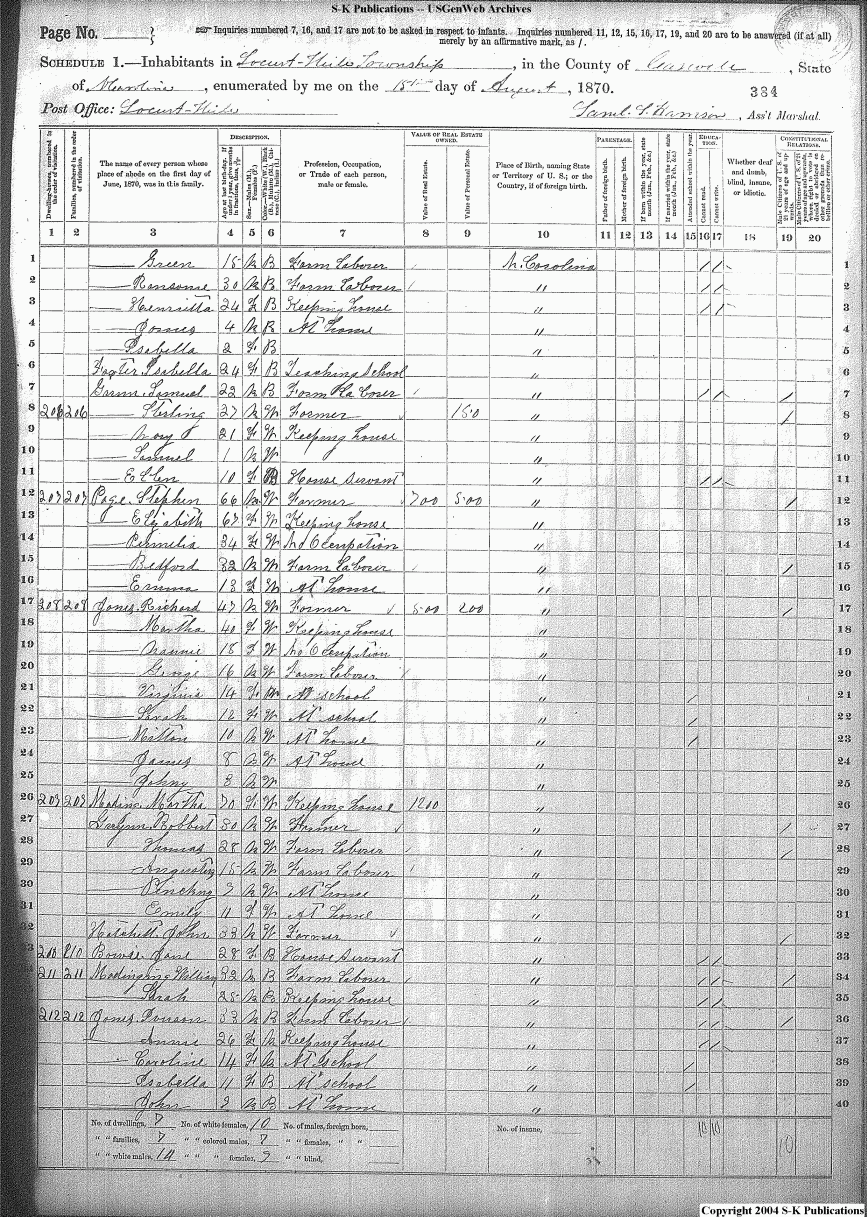 S-K Publications -- USGenWeb Archives
Page No.
Inquiries numbered 7, 16, and 17 are not to be asked in respect to infants. Inquiries numbered 11, 12, 15, 16, 17, 19, and 20 are to be answered (if at all) merely by an affirmative mark, as /.
SCHEDULE 1.—Inhabitants in Locust-Hill Township, in the County of Caswell, State
of N. Carolina, enumerated by me on the 15th day of August, 1870. 384
Post Office: Locust-Hill Saml. , Ass't Marshal.
DESCRIPTION. VALUE OF REAL ESTATE OWNED. PARENTAGE. EDUCATION. CONSTITUTIONAL RELATIONS.
Dwelling-houses, numbered in the order of visitation. Families, numbered in the order of visitation. The name of every person whose place of abode on the first day of June, 1870, was in this family. Profession, Occupation, or Trade of each person, male or female. Value of Real Estate. Value of Personal Estate. Place of Birth, naming State or Territory of U. S.; or the Country, if of foreign birth. Father of foreign birth. Mother of foreign birth. If born within the year, state month (Jan., Feb., &c.) If married within the year, state month (Jan., Feb., &c.) Attended school within the year. Cannot read. Cannot write. Whether deaf and dumb, blind, insane, or idiotic.
1 2 3 4 5 6 7 8 9 10 11 12 13 14 15 16 17 18 19 20
1 Green 15 M B Farm Laborer N. Carolina / / 1
2 Ransome 30 M B Farm Laborer " / / 2
3 Henrietta 24 F B Keeping house " / / 3
4 James 4 M B At home " 4
5 Isabella 2 F B " 5
6 Isabella 24 F B Teaching School " 6
7 Samuel 22 M B Farm Laborer " / / / 7
8 206 206 Sterling 27 M W Farmer 150 " / 8
9 Mary 21 F W Keeping house " 9
10 Samuel 1 M W " 10
11 Ellen 10 F B House Servant " / / 11
12 207 207 Page, Stephen 66 M W Farmer 700 500 " / 12
13 Elizabith 67 F W Keeping house " 13
14 Permelia 34 F W No Occupation " 14
15 Bedford 32 M W Farm Laborer " / 15
16 Emma 13 F W At home " 16
17 208 208 Jones, Richard 47 M W Farmer 500 200 " / 17
18 Martha 40 F W Keeping house " 18
19 Nannie 18 F W No Occupation " 19
20 George 16 M W Farm Laborer " 20
21 Virginia 14 F W At school " / 21
22 Sarah 12 F W At school " / 22
23 Milton 10 M W At home " / 23
24 James 8 M W At home " 24
25 Johny 3 M W " 25
26 209 209 Martha 70 F W Keeping house 1200 " 26
27 Robbert 30 M W Farmer " / 27
28 Thomas 28 M W Farm Laborer " / 28
29 15 M W Farm Laborer " 29
30 M W At home " 30
31 Emily 11 F W At home " 31
32 John 33 M W Farmer " / 32
33 210 210 Jane 28 F B House Servant " / / 33
34 211 211 William 32 M B Farm Laborer " / / / 34
35 Sarah 25 M B Keeping house " / / 35
36 212 212 Jones, 33 M B Farm Laborer " / / / 36
37 26 F B Keeping house " / / 37
38 Caroline 14 F B At school " / 38
39 Isabella 11 F B At school " / 39
40 John 9 M B At home " 40
No. of dwellings, 7 No. of white females, 10 No. of males, foreign born, No. of insane, 10 10
" " families, 7 " " colored males, 7 " " females, " " 10
" " white males, 14 " " " females, 9 " " blind,
Copyright 2004 S-K Publications